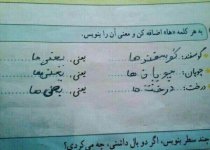 به هر کلمه «ها» اضافه کن و معنی آن را بنویس.
گوسفند: گوسفندها یعنی: بعبعی‌ها
چوپان: چوپان‌ها یعنی:
درخت: درخت‌ها یعنی:
چند سطر بنویس، اگر دو بال داشتی، چه می‌کردی؟